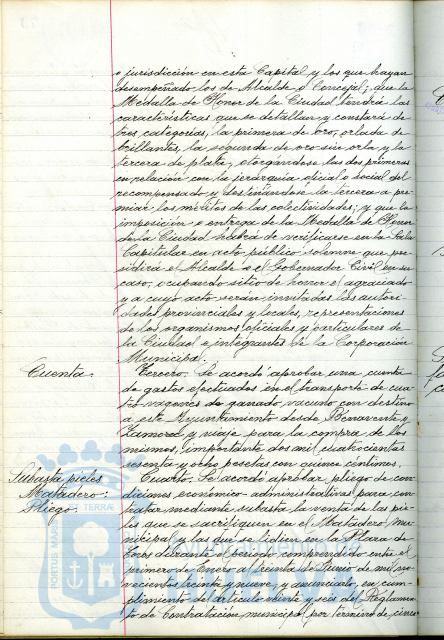 o jurisdicción en esta Capital y los que hayan
desempeñado los de Alcalde o Concejal; que la
Medalla de Honor de la Ciudad tendrá las
características que se detallan y constará de
tres categorías, la primera de oro, orlada de
brillantes, la segunda de oro sin orla y la
tercera de plata, otorgándose las dos primeras
en relación con la jerarquía oficial o social del
recompensado y destinándose la tercera a pre-
miar los méritos de las colectividades; y que la
imposición o entrega de la Medalla de Honor
de la Ciudad habrá de verificarse en la Sala
Capitular en acto público solemne que pre-
sidirá el Alcalde o el Gobernador Civil en su
caso, ocupando sitio de honor el agraciado
y a cuyo acto serán invitadas las autori-
dades provinciales y locales, representaciones
de los organismos oficiales y particulares de
la Ciudad e integrantes de la Corporación
Municipal.
Cuenta. Tercero. Se acordó aprobar una cuenta
de gastos efectuados en el transporte de cua-
tro vagones de ganado vacuno con destino
a este Ayuntamiento desde Benavente y
Zamora y viaje para la compra de los
mismos, importante dos mil cuatrocientas
sesenta y ocho pesetas con quince céntimos.
Subasta pieles Cuarto. Se acordó aprobar pliego de con-
Matadero: diciones económico-administrativas para con-
Pliego. tratar mediante subasta la venta de las pie-
les que se sacrifiquen en el Matadero mu-
nicipal y las que se lidien en la Plaza de
Toros durante el periodo comprendido entre el
primero de Enero al treinta de Junio de mil no-
vecientos treinta y nueve, y anunciarlo, en cum-
plimiento del artículo veinte y seis del Reglamen-
to de Contratación municipal por término de cinco
PORTUS
TERRÆ